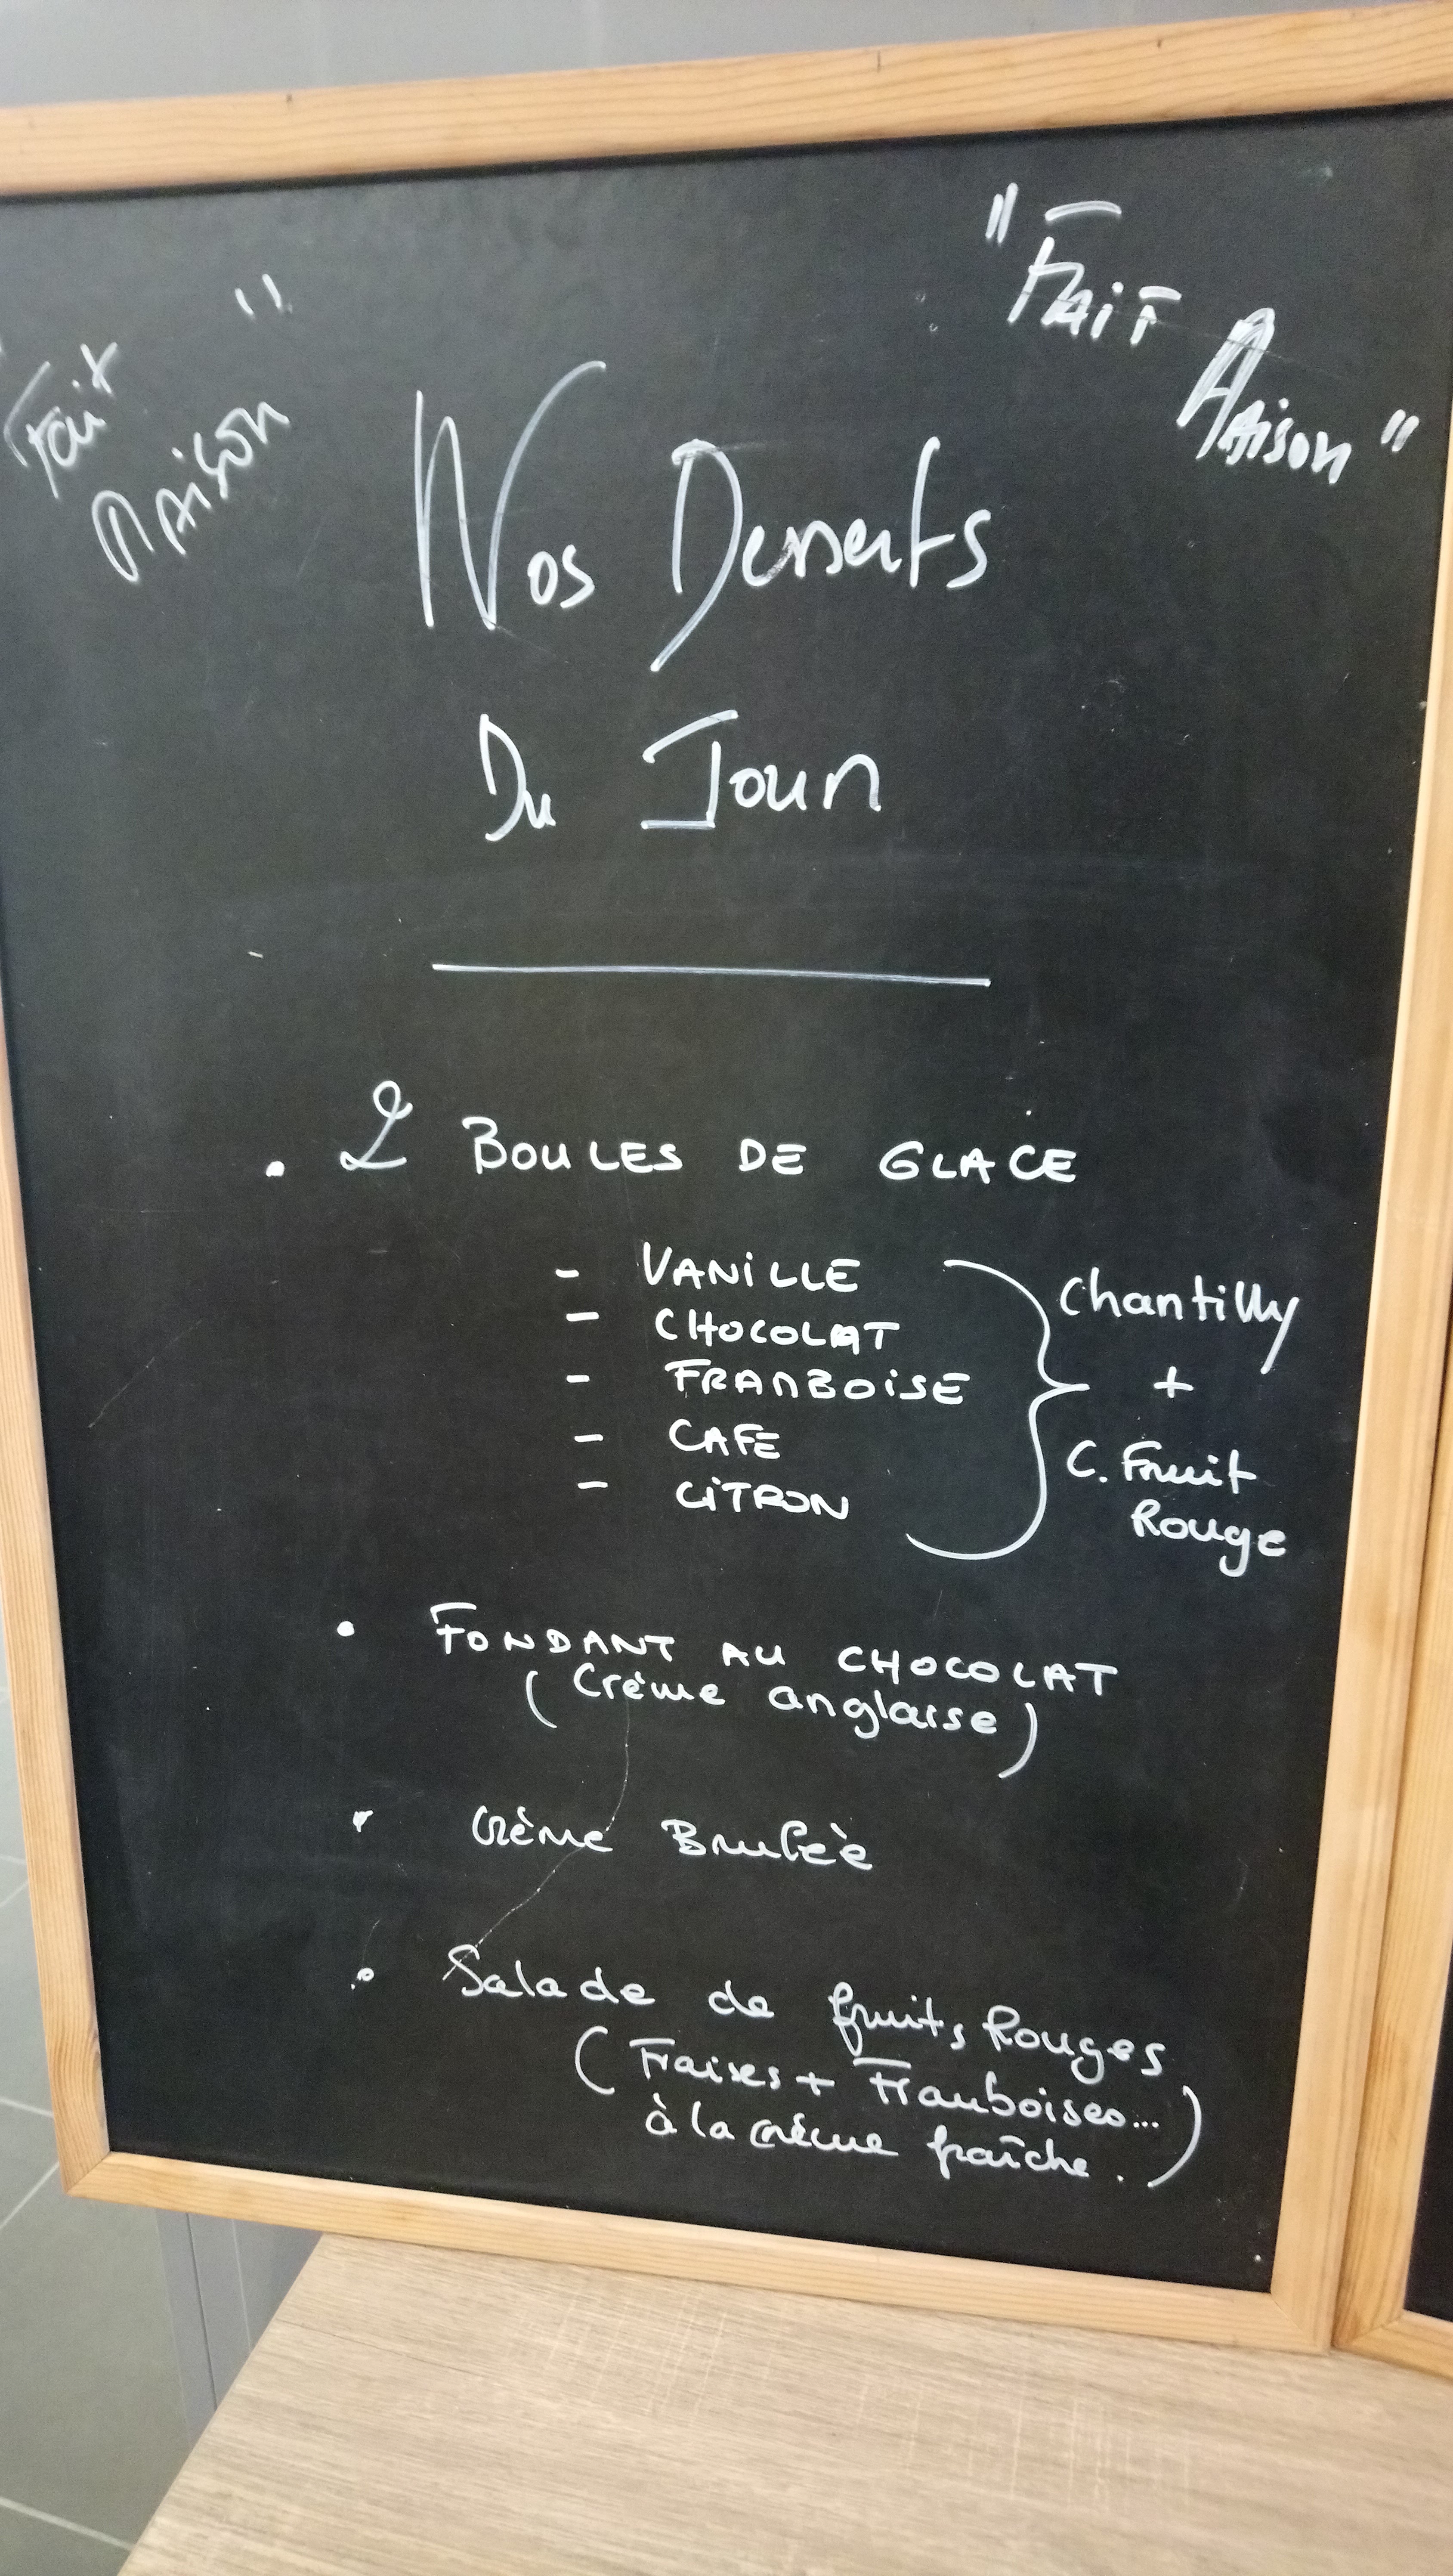 "Fait
Maison"
"Fait
Maison"
Nos Desserts
Du Jour
. 2 BOULES DE GLACE
- VANILLE
- CHOCOLAT
- FRAMBOISE
- CAFE
- CITRON
Chantilly
+
C. Fruit
Rouge
• FONDANT AU CHOCOLAT
(Crème anglaise)
• Crème Brulée
• Salade de fruits Rouges
(Fraises + Framboises...
à la crème fraîche.)